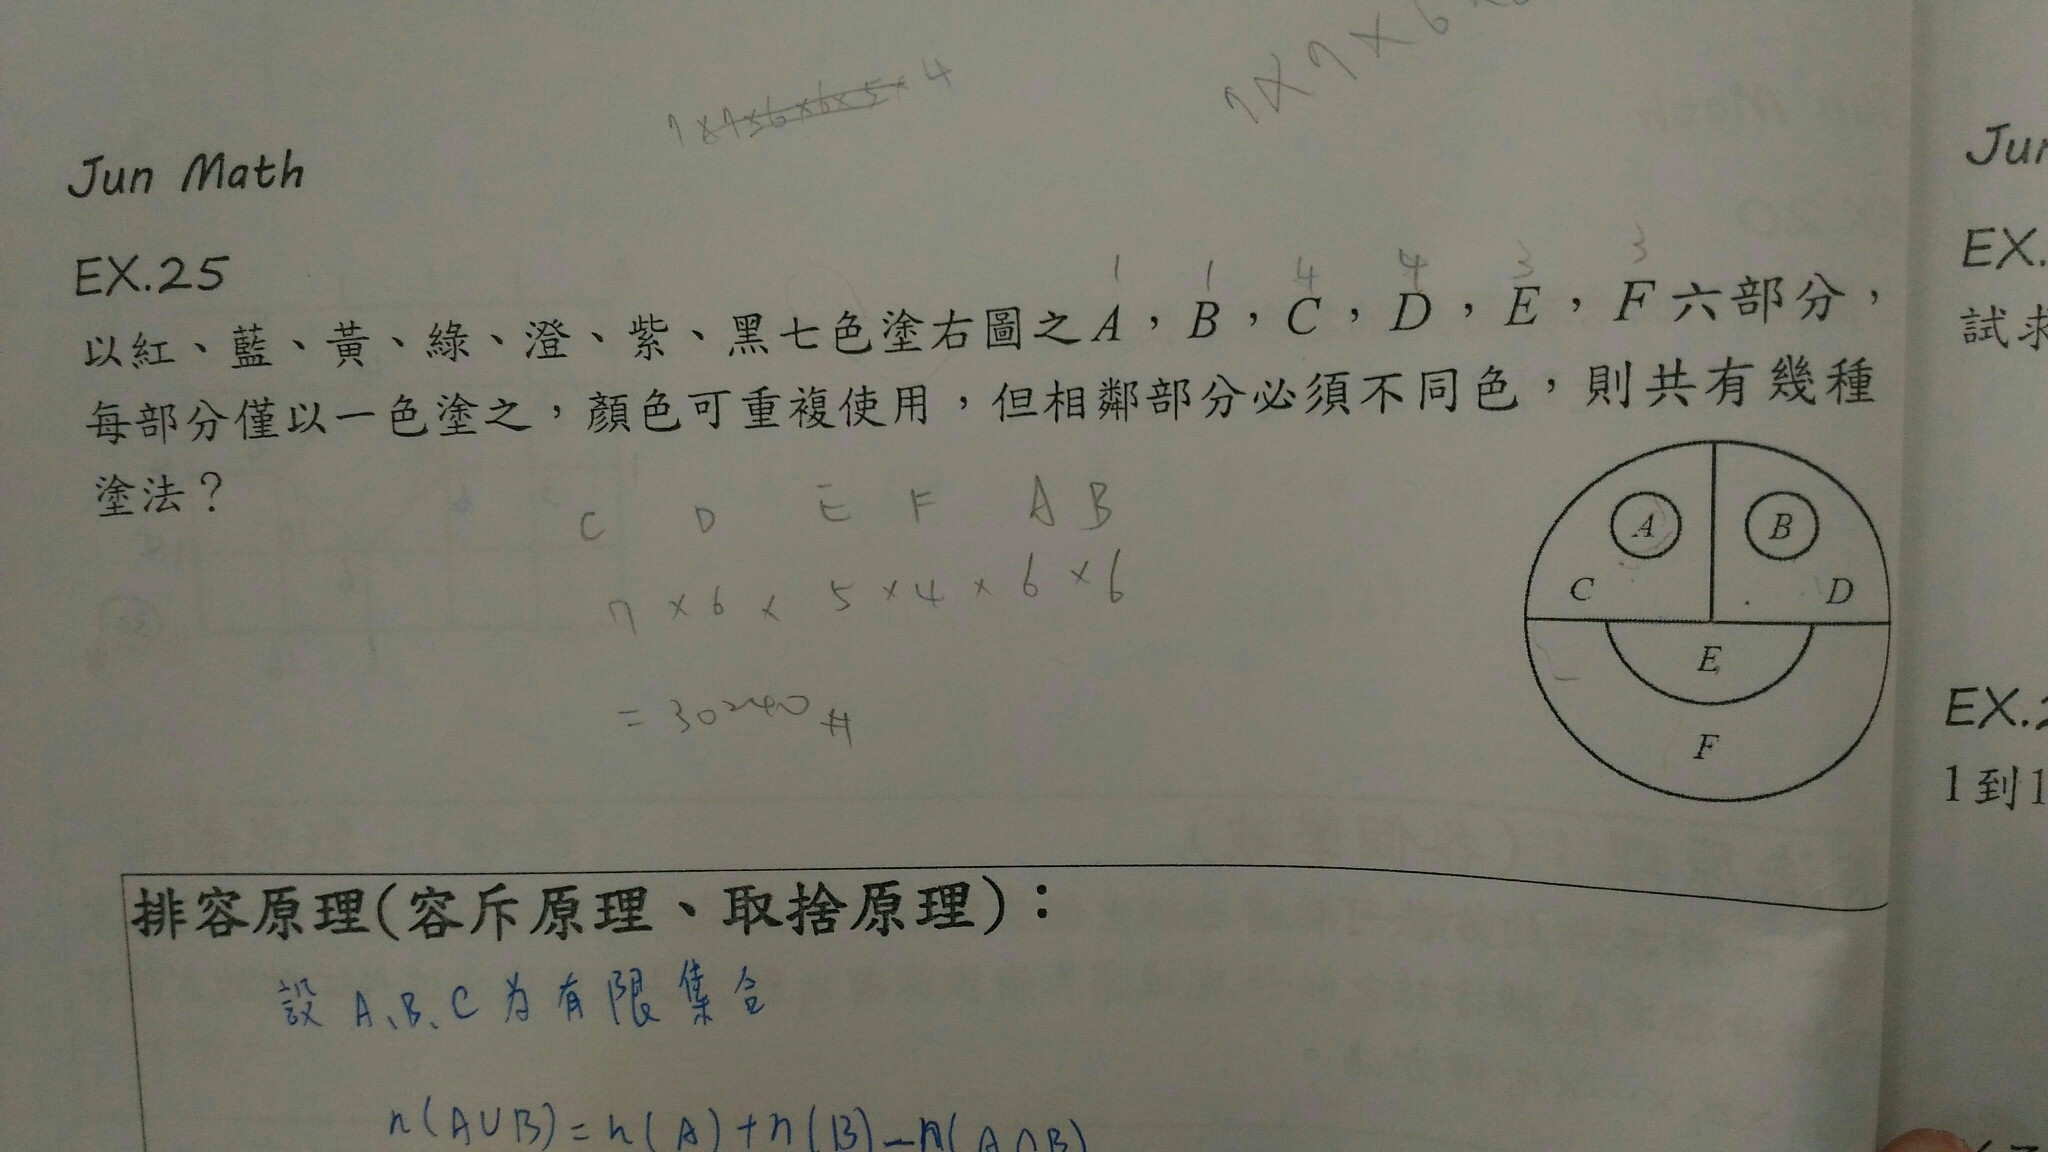 7×7×6×6×5×4
7×7×6
Jun Math
EX.25
1 1 4 4 3 3
以紅、藍、黃、綠、澄、紫、黑七色塗右圖之A，B，C，D，E，F六部分，
每部分僅以一色塗之，顏色可重複使用，但相鄰部分必須不同色，則共有幾種
塗法？
C D E F A B
7 × 6 × 5 × 4 × 6 × 6
= 30240 #
A B
C D
E
F
排容原理(容斥原理、取捨原理)：
設 A、B、C 为有限集合
n(A∪B)=n(A)+n(B)-n(A∩B)
Jun
EX.
試求
EX.2
1到1